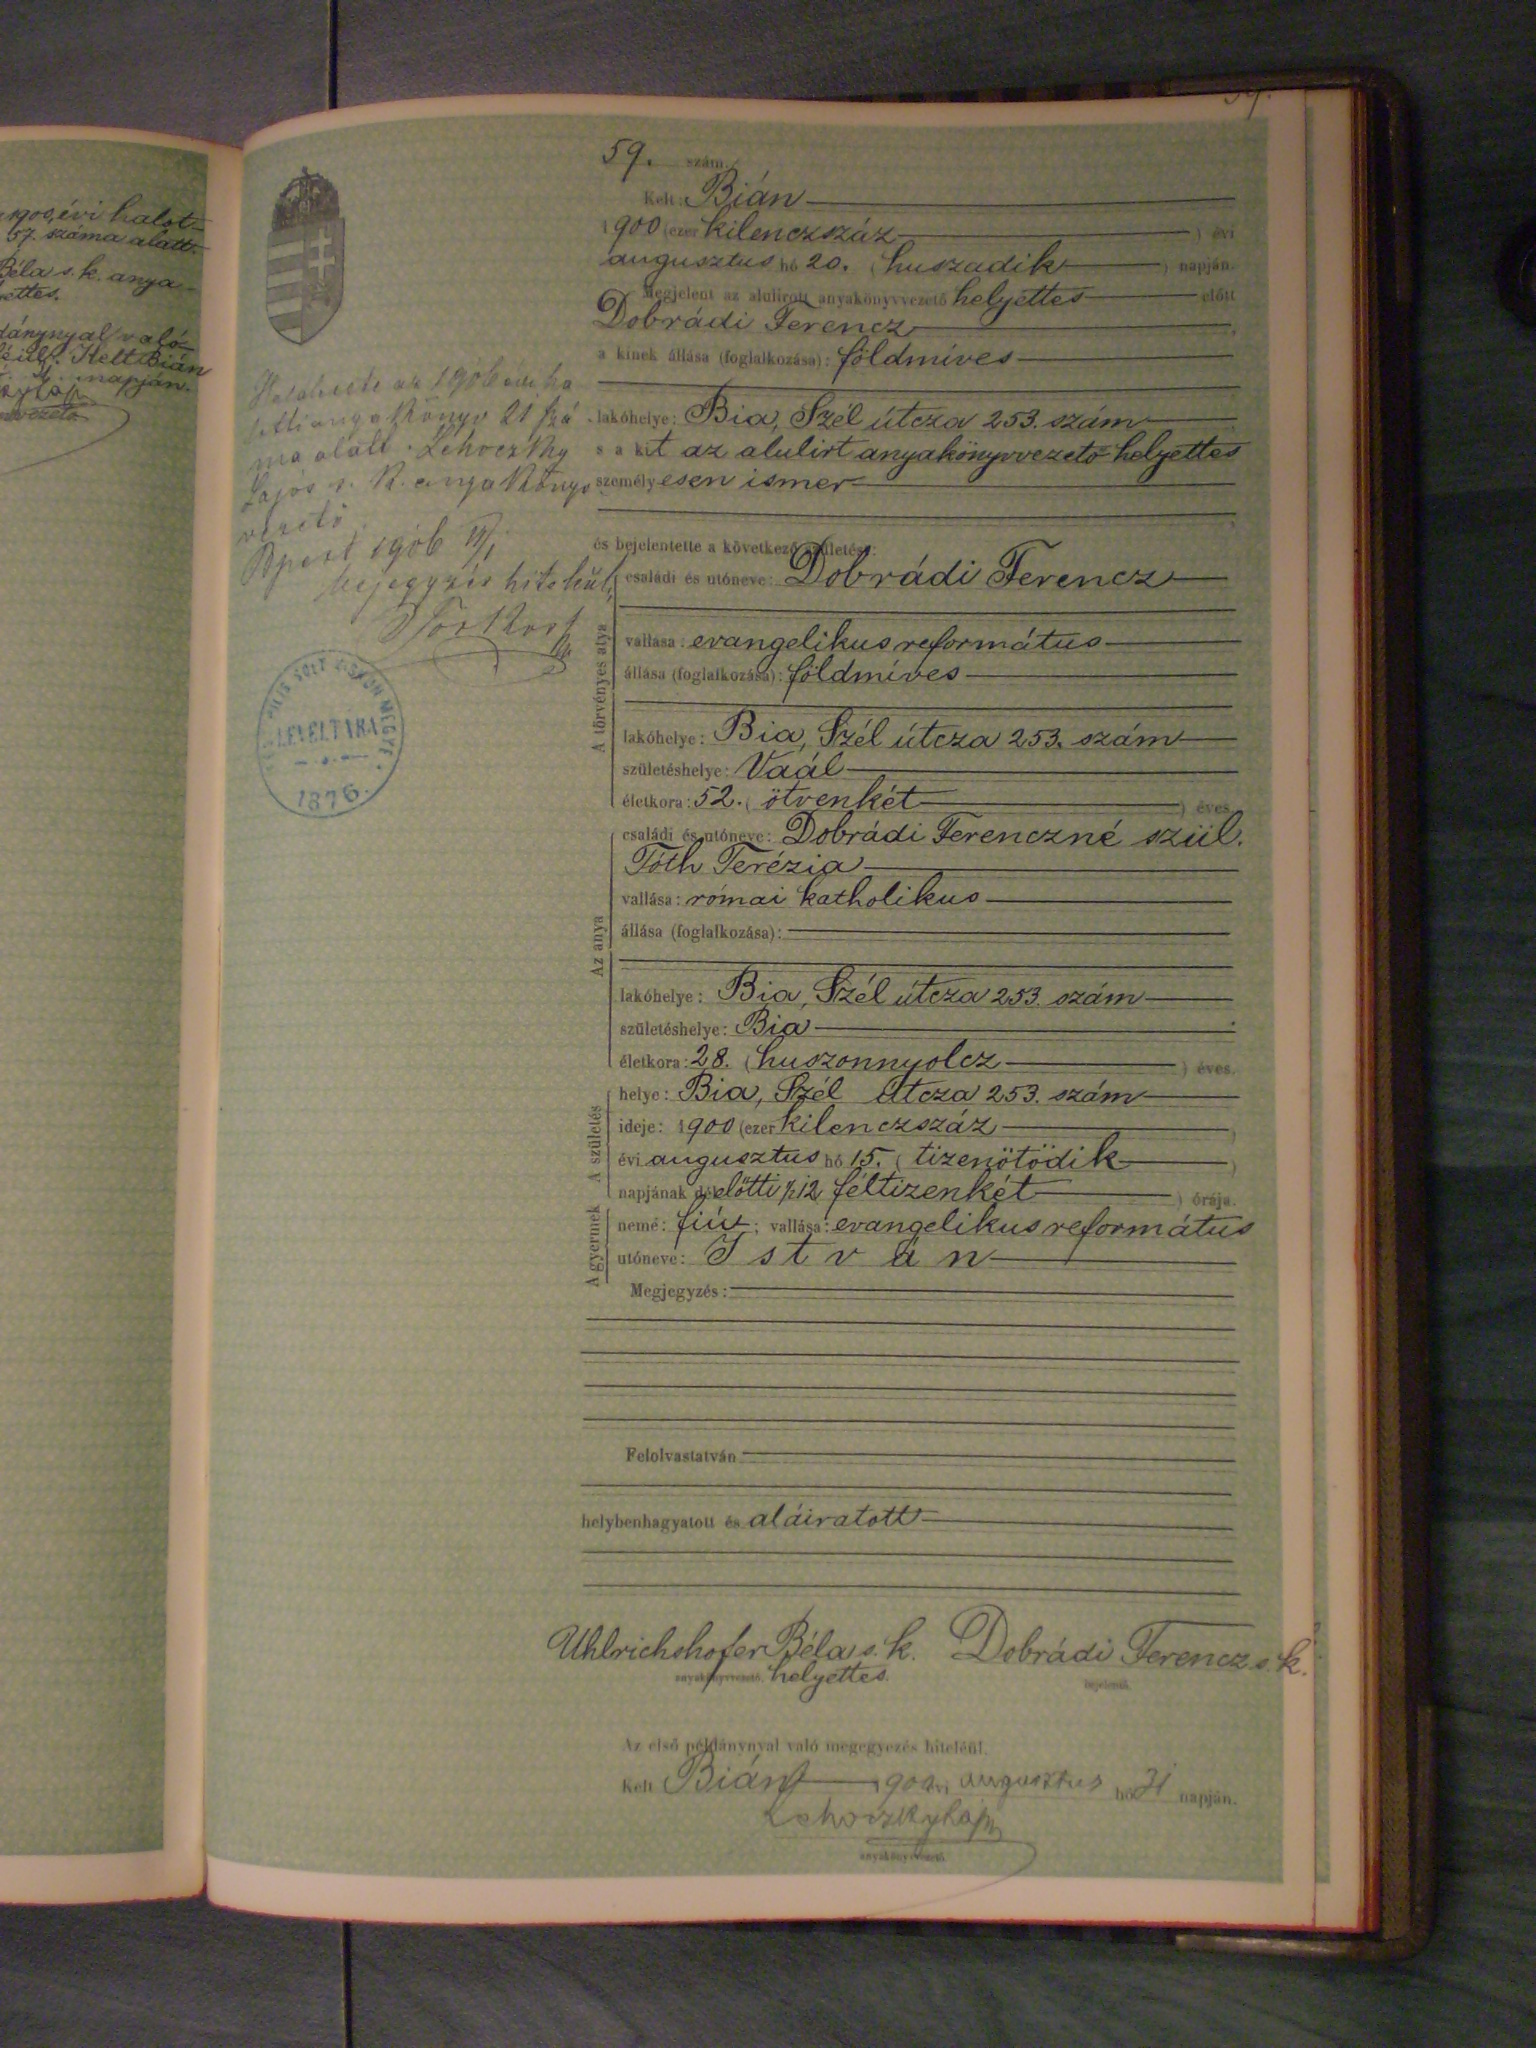 1900. évi halot-
57. száma alatt.
Béla s. k. anya-
ettes.
dánynyal való
Kelt Bián
napján.
59. szám.
Kelt: Bián
1900 (ezer kilenczszáz) évi
augusztus hó 20. (huszadik) napján.
Megjelent az alulirott anyakönyvvezető helyettes előtt
Dobrádi Ferencz
a kinek állása (foglalkozása): földmíves
lakóhelye: Bia, Szél útcza 253. szám
s a kit az alulirt anyakönyvvezető helyettes
személyesen ismer
és bejelentette a következő születést:
A törvényes atya
családi és utóneve: Dobrádi Ferencz
vallása: evangelikus református
állása (foglalkozása): földmíves
lakóhelye: Bia, Szél útcza 253. szám
születéshelye: Vaál
életkora: 52. (ötvenkét) éves.
Az anya
családi és utóneve: Dobrádi Ferenczné szül.
Tóth Terézia
vallása: római katholikus
állása (foglalkozása):
lakóhelye: Bia, Szél útcza 253. szám
születéshelye: Bia
életkora: 28. (huszonnyolcz) éves.
A születés
helye: Bia, Szél útcza 253. szám
ideje: 1900 (ezer kilenczszáz)
évi augusztus hó 15. (tizenötödik)
napjának délelőtti ½12 féltizenkét) órája.
A gyermek
neme: fiú; vallása: evangelikus református
utóneve: István
Megjegyzés:
Felolvastatván
helybenhagyatott és aláiratott
Uhlrichshofer Béla s. k. Dobrádi Ferencz s. k.
anyakönyvvezető helyettes. bejelentő.
Az első példánynyal való megegyezés hiteléül.
Kelt Bián 1900 évi augusztus hó 31 napján.
Lehoczky Lajos
anyakönyvvezető.
az 1906 évi ha
lotti anyakönyv 21 szá
ma alatt. Lehoczky
Lajos s. k. anyakönyv
vezető
Bpest 1906
bejegyzés hiteléül
PILIS SOLT KISKUN MEGYE
LEVÉLTÁRA
1876.